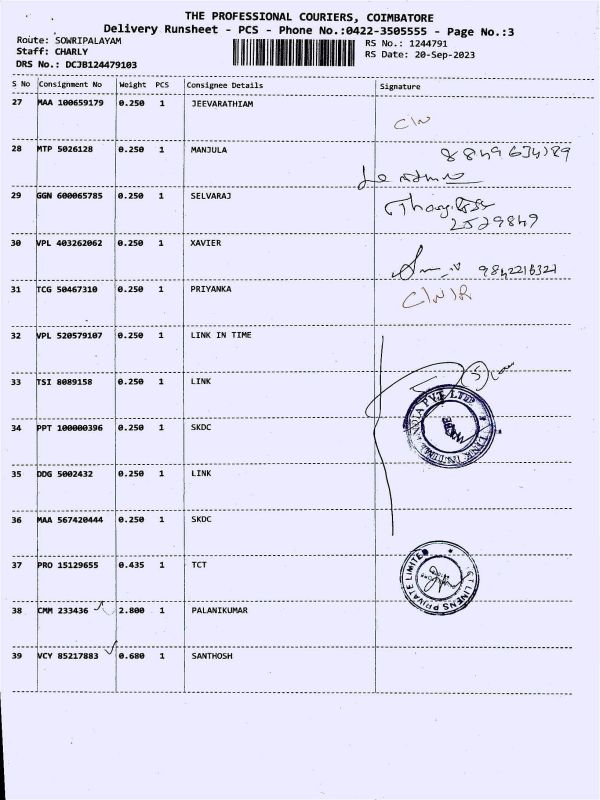 THE PROFESSIONAL COURIERS, COIMBATORE
Delivery Runsheet - PCS - Phone No.:0422-3505555 - Page No.:3
Route: SOWRIPALAYAM
RS No.: 1244791
Staff: CHARLY
RS Date: 20-Sep-2023
DRS No.: DCJB124479103
S No Consignment No Weight PCS Consignee Details Signature
27 MAA 100659179 0.250 1 JEEVARATHIAM
C/N
28 MTP 5026128 0.250 1 MANJULA
29 GGN 600065785 0.250 1 SELVARAJ
2529849
30 VPL 403262062 0.250 1 XAVIER
9842216321
31 TCG 50467310 0.250 1 PRIYANKA
C/N/R
32 VPL 520579107 0.250 1 LINK IN TIME
33 TSI 8089158 0.250 1 LINK
5
34 PPT 100000396 0.250 1 SKDC
LINK INTIME INDIA PVT LTD
35 DDG 5002432 0.250 1 LINK
36 MAA 567420444 0.250 1 SKDC
37 PRO 15129655 0.435 1 TCT
LINENS PRIVATE LIMITED
38 CMM 233436 2.800 1 PALANIKUMAR
39 VCY 85217883 0.680 1 SANTHOSH